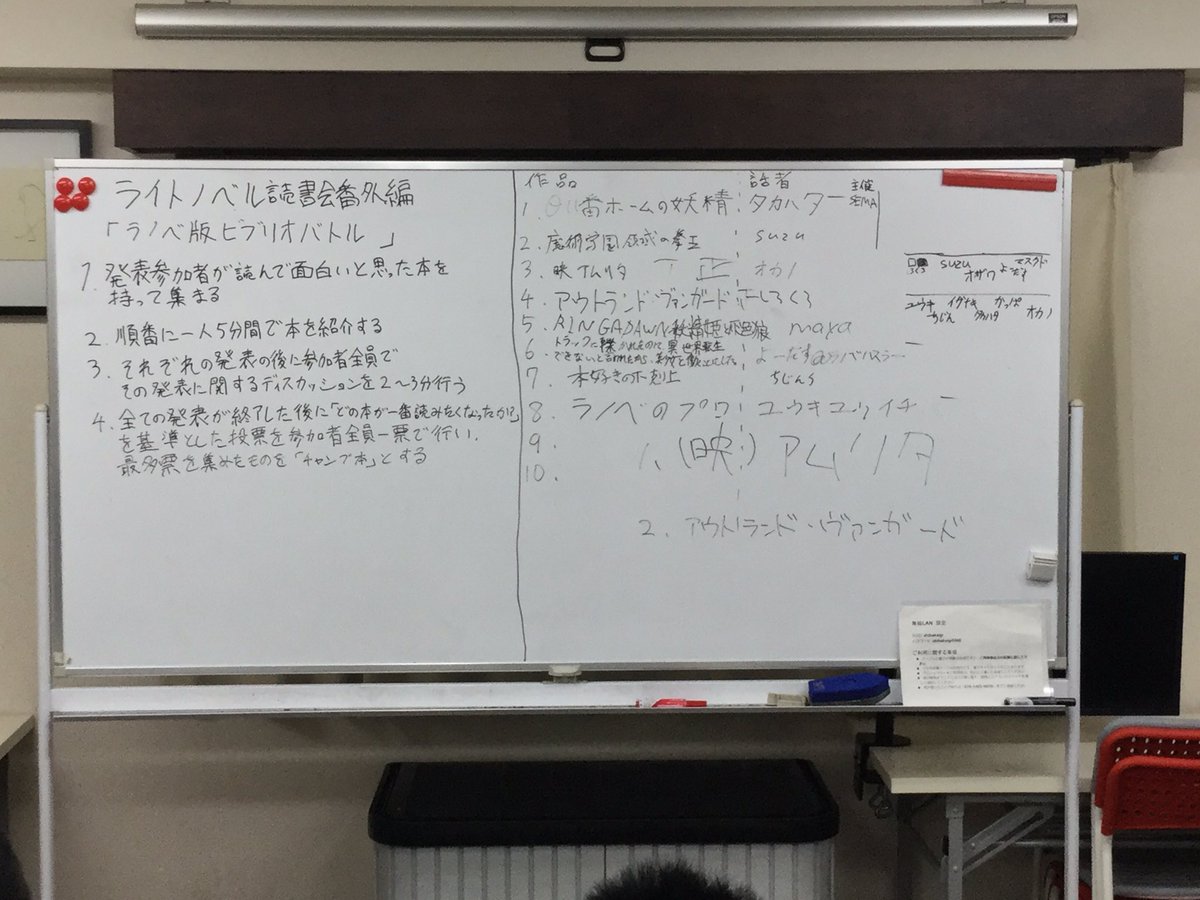 ライトノベル読書会番外編
「ラノベ版ビブリオバトル」
1. 発表参加者が読んで面白いと思った本を
持って集まる
2. 順番に一人5分間で本を紹介する
3. それぞれの発表の後に参加者全員で
その発表に関するディスカッションを2〜3分行う
4. 全ての発表が終了した後に「どの本が一番読みたくなったか?」
を基準とした投票を参加者全員一票で行い、
最多票を集めたものを「チャンプ本」とする
作品 話者
1. 番ホームの妖精 タカハター
2. 魔術学園領域の拳王 suzu
3. 映 アムリタ 丅 正 オカノ
4. アウトランド・ヴァンガード 正 しろくろ
5. RINGADAWN 妖精姫と灰色狼 maxa
トラックに轢かれたのに異世界転生
6 できないと言われたから、美少女と旅立にした。 よーだす
7. 本好きの下剋上 ちじんう
8. ラノベのプロ! ユウキユウイチ 一
9.
10.
1. (映) アムリタ
2. アウトランド・ヴァンガード
主催
suzu よーだす マスクド
オザワ
ユウキ イダナキ かっぱ
ちじん タカハタ オカノ
無線LAN 設定
ご利用に関する事項